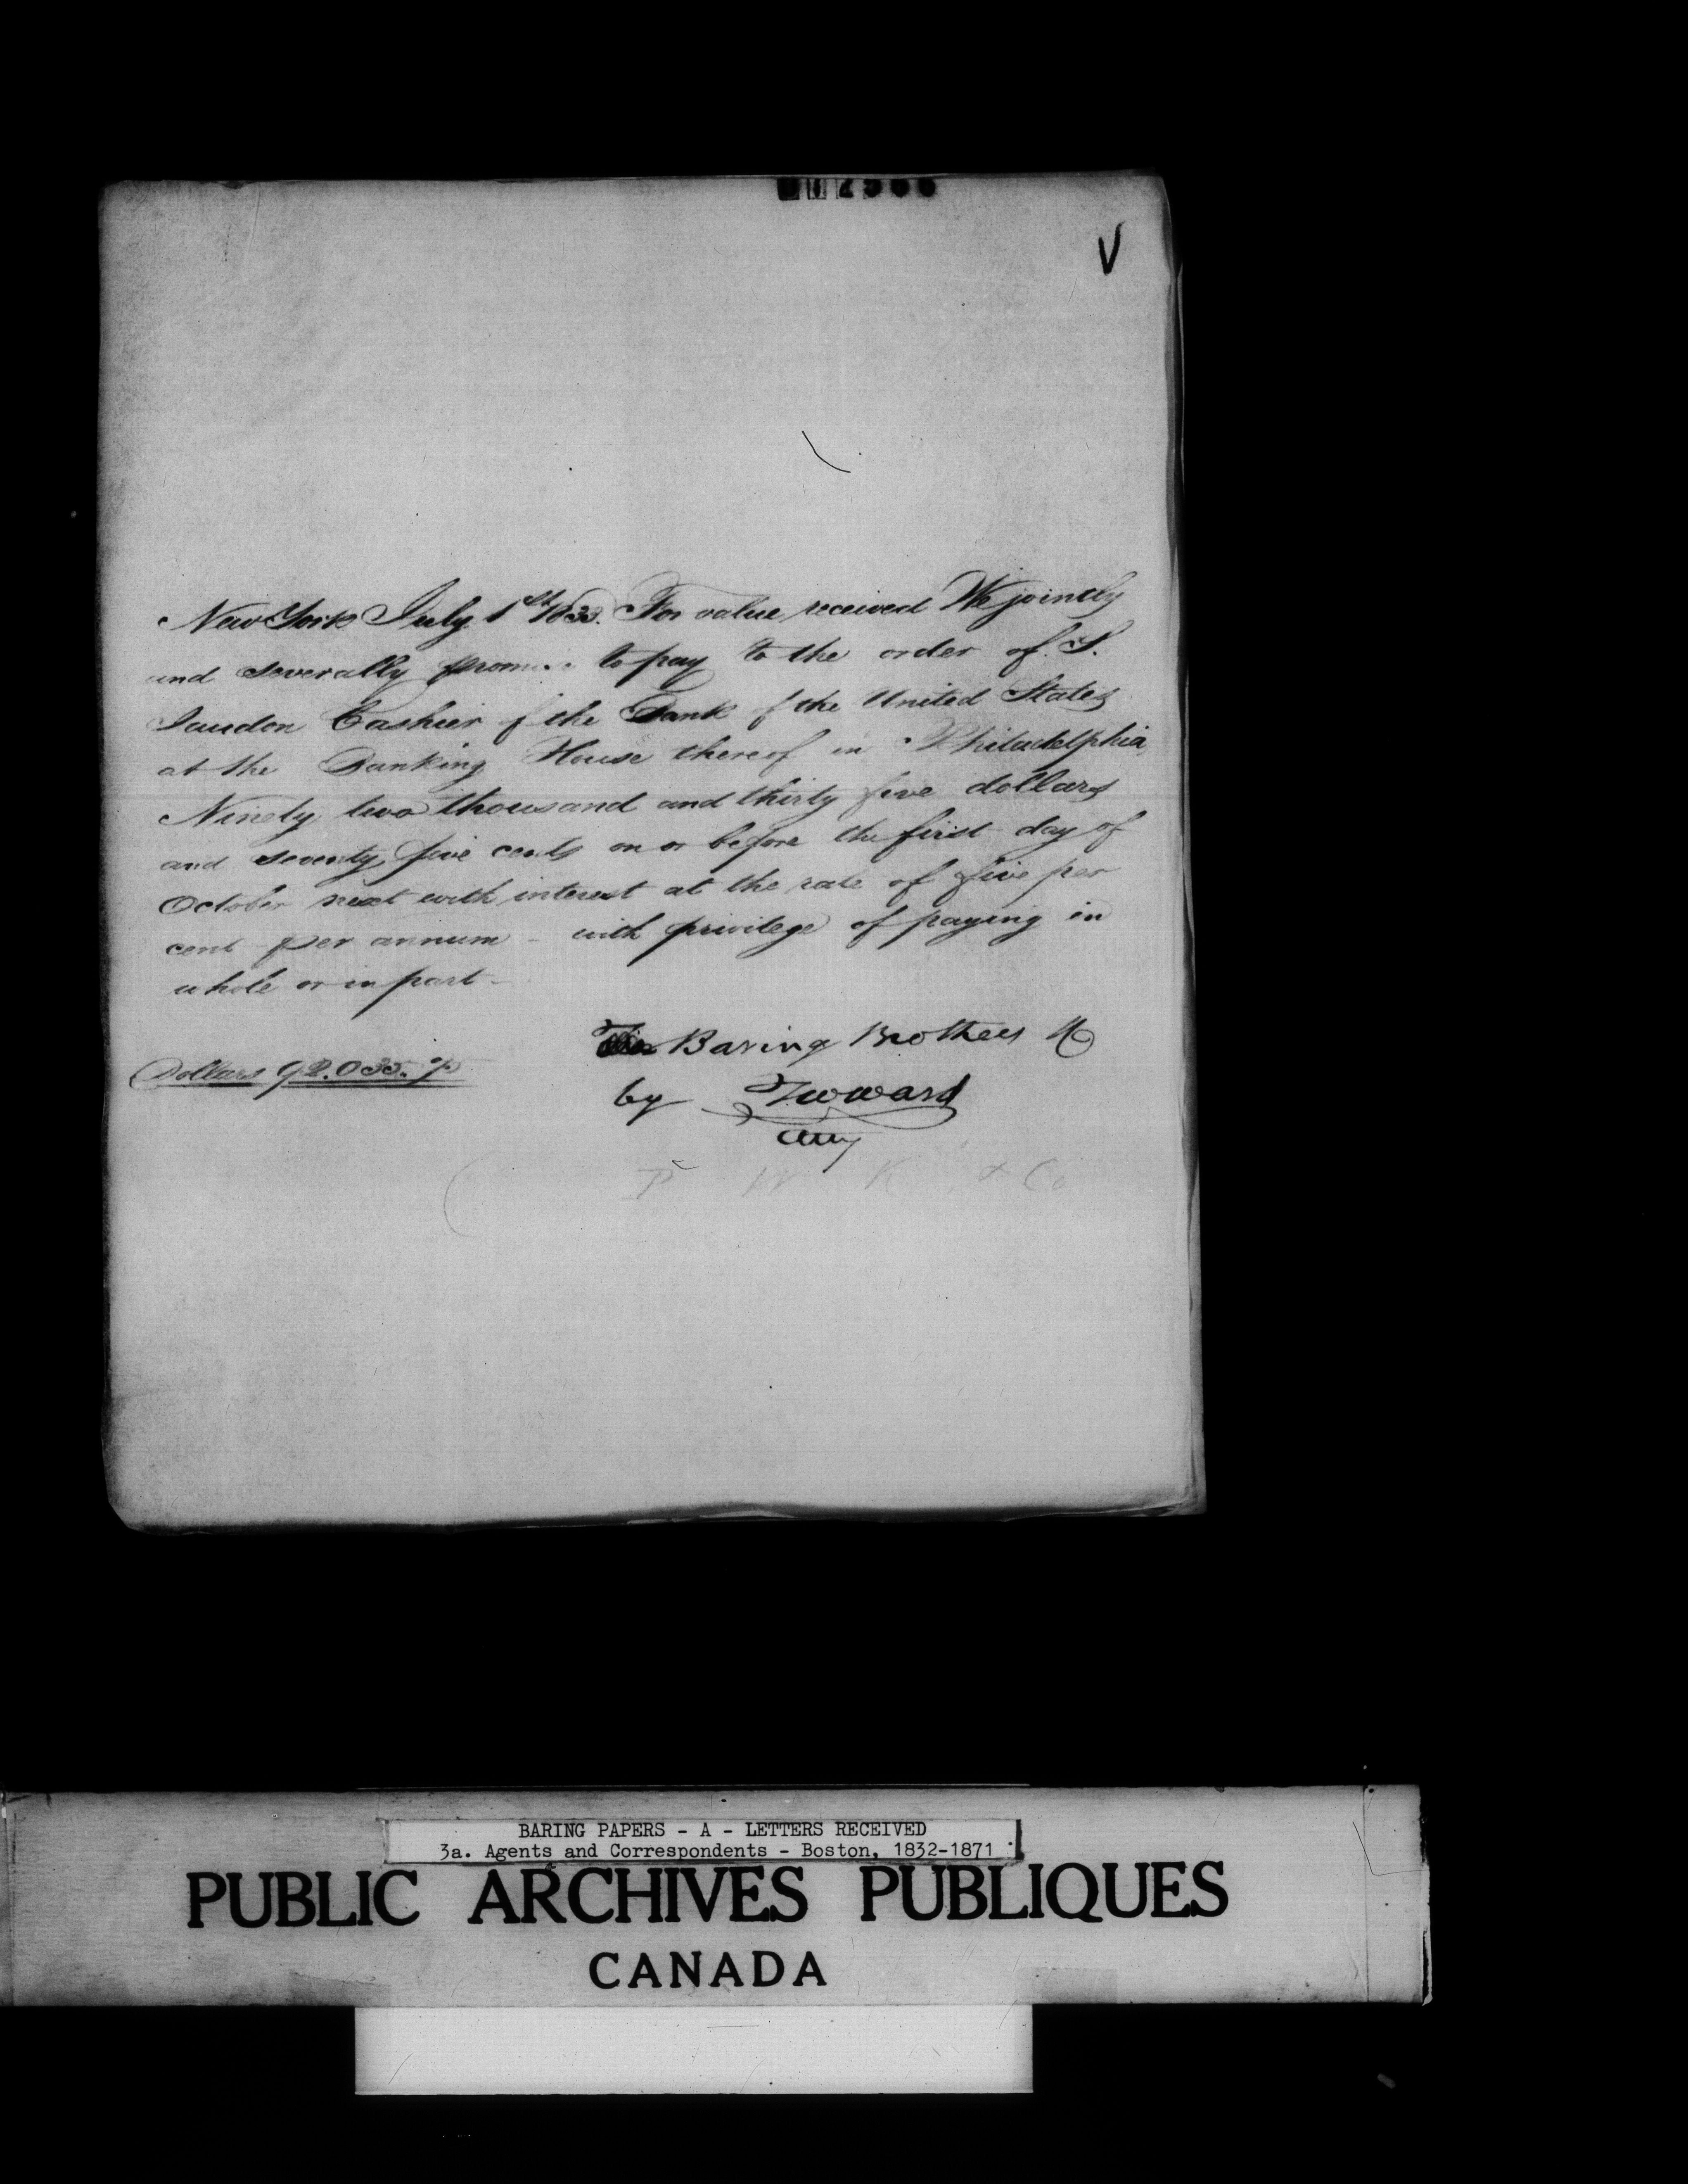 V
New York July 1st 1833. For value received We jointly
and severally promise to pay to the order of S.
Jaudon Cashier of the Bank of the United States
at the Banking House thereof in Philadelphia,
Ninety two thousand and thirty five dollars
and seventy five cents on or before the first day of
October next with interest at the rate of five per
cent per annum - with privilege of paying in
whole or in part -
Baring Brothers & Co
Dollars 92.035. 75
by TWWard
atty
P W K & Co
BARING PAPERS - A - LETTERS RECEIVED
3a. Agents and Correspondents - Boston, 1832-1871
PUBLIC ARCHIVES PUBLIQUES
CANADA